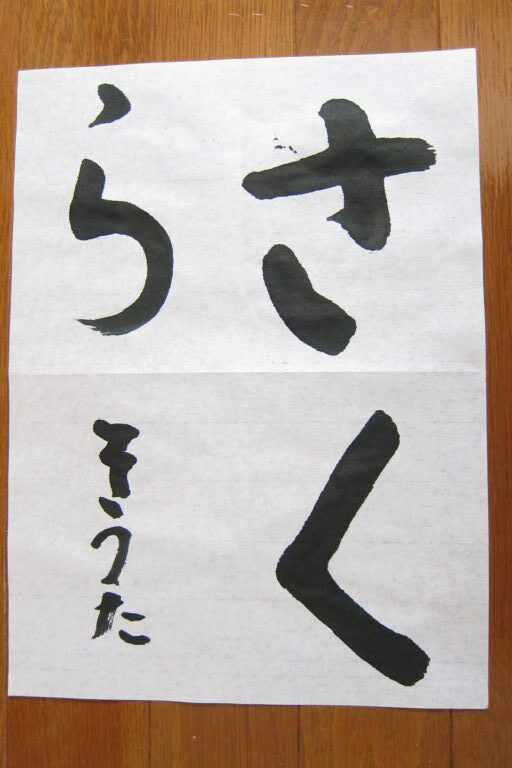 さく
ら
そうた